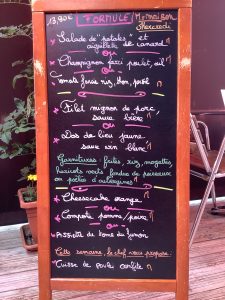 13,90€ FORMULE
Mercredi
Salade de "patates" et
aiguillette de canard
ou
Champignon farci poulet, ail
ou
Tomate farcie riz, bon, porc
Filet mignon de porc,
sauce bière
ou
Dos de lieu jaune,
sauce vin blanc
Garnitures: frites, riz, mogettes,
haricots verts, fondue de poireaux
ou poêlée d'aubergines
Cheesecake orange
ou
Compote pomme, poire
ou
Assiette de tome du
Cette semaine, le chef vous propose:
Cuisse de poulet confite